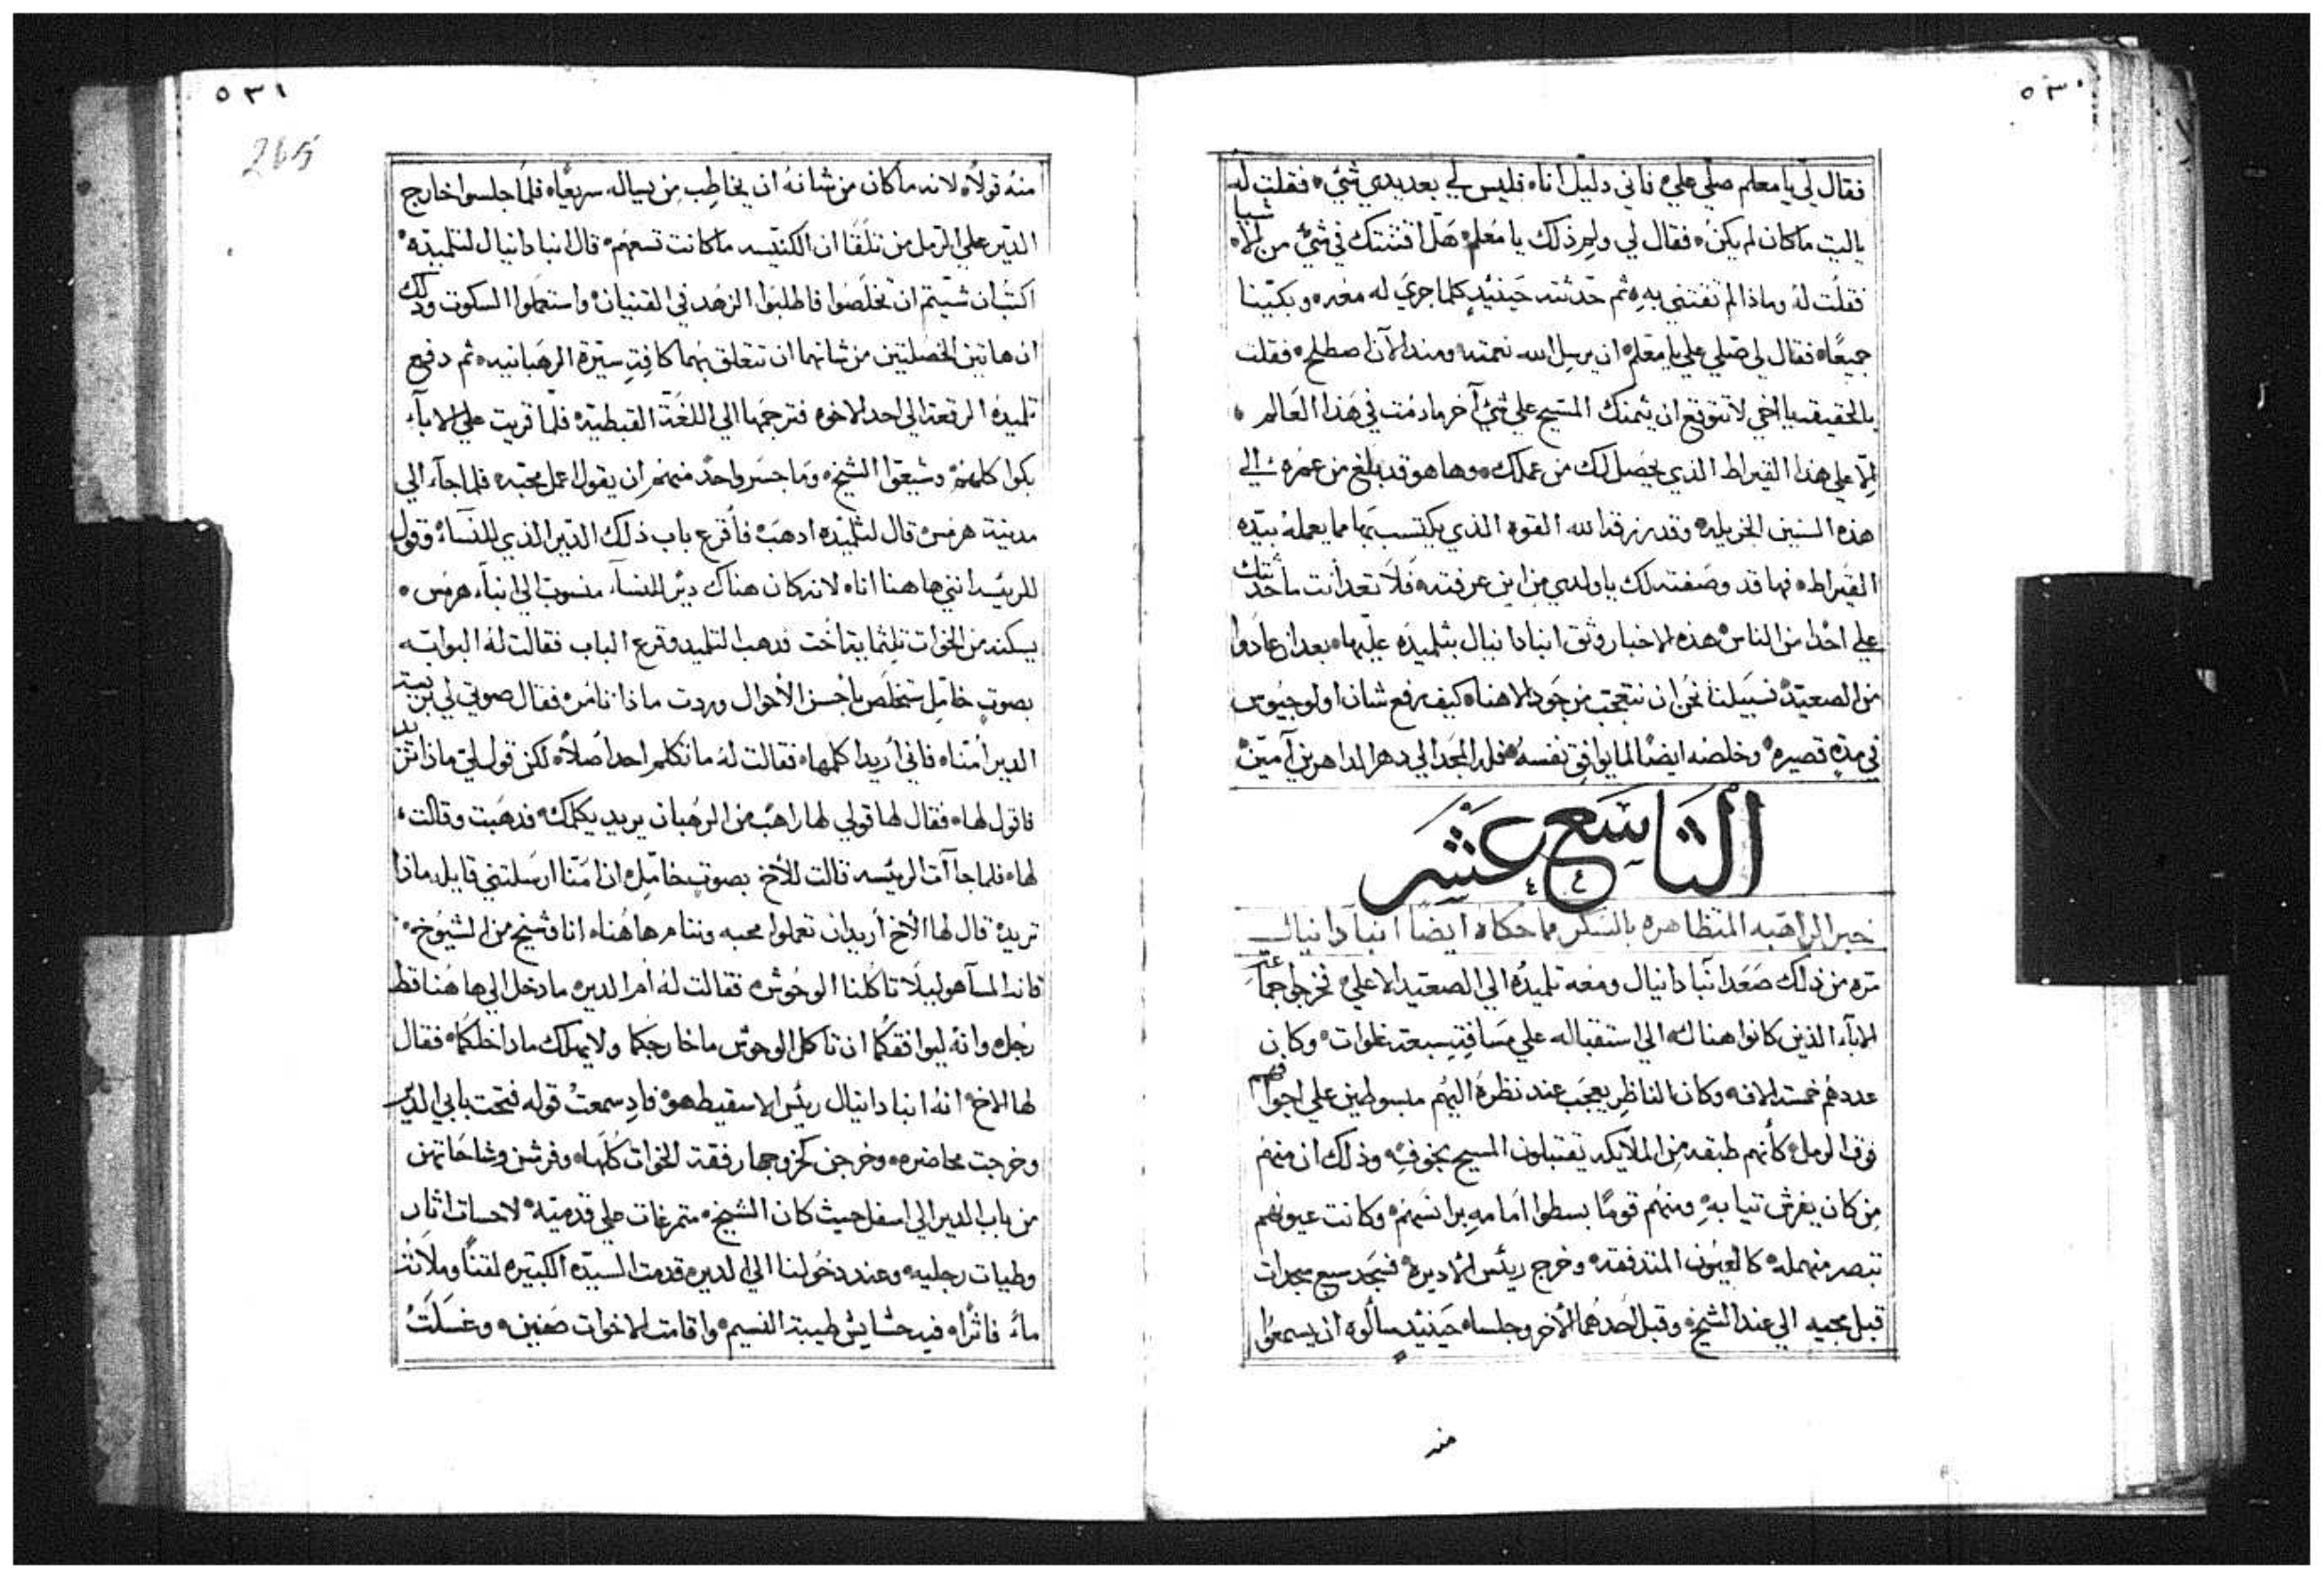 ٥٣٠
فقال لي يا معلم صلي علي فاني دليل انا، فليس لي بعد يدي شيء، فقلت له
يا ليت ما كان لم يكن، فقال لي ولم ذلك يا معلم، هل افتنتك في شيء من الاشيا
فقلت له وماذا لم تفتني به، ثم حدثته حينيدٍ كلما جري له معه، وبكينا
جميعًا، فقال لي صلي علي يا معلم، ان يرسل الله نعمته ومند الآن اصطلح، فقلت
بالحقيقه يا اخي لا تتوقع ان يثمنك المسيح علي شيء آخر ما دمت في هذا العالم،
الا علي هذا القيراط الذي يحصل لك من عملك، وها هو قد بلغ من عمره الي
هذه السنين الجزيله، وقد رزقه الله القوه الذي يكتسب بها مما يعمله بيده
القيراط، فها قد وصفته لك يا ولدي من اين عرفته، فلا تعد انت ما حدثتك
علي احدًا من الناس، هذه الاخبار وثق انبا دانيال بتلميده عليها، بعد ان عادوا
من الصعيد، فسبيلنا نحن ان نتعجب من جود الاهنا، كيف رفع شان اولوجيوس
في مدةٍ قصيره، وخلصه ايضًا لما يوافق نفسه، فله المجد الي دهر الداهرين آمين
التاسع عشر
خبر الراهبه المتظاهره بالسكر مما حكاه ايضًا انبا دانيال
مره من ذلك صعد انبا دانيال ومعه تلميده الي الصعيد الاعلي، فخرجوا جماعة
الاباء الذين كانوا هناك، الي استقباله علي مسافة سبعة غلوات، وكان
عددهم خمسة الاف، وكان الناظر يعجب عند نظره اليهم مبسوطين علي اجوافهم
فوق الرمل، كأنهم طبقه من الملايكه يقتبلون المسيح بخوفٍ، وذلك ان منهم
من كان يفرش تيابه، ومنهم قومًا بسطوا امامه برانسهم، وكانت عيونهم
تبصر منهمله، كالعيون المتدفقه، وخرج ريئس الاديره، فسجد سبع سجدات
قبل مجيه الي عند الشيخ، وقبل احدهما الآخر وجلسا، حينيدٍ سالوه ان يسمعوا
منه
٥٣١
265
منه قولاً، لانه ما كان من شانه ان يخاطب من يساله سريعًا، فلما جلسوا خارج
الدير علي الرمل من تلقا ان الكنيسه ما كانت تسعهم، قال انبا دانيال لتلميده،
اكتب ان شيتم ان تخلصوا فاطلبوا الزهد في القنيان، واستعملوا السكوت وذلك
ان هاتين الخصلتين من شانهما ان تتعلق بهما كافة سيرة الرهبانيه، ثم دفع
تلميده الرقعه الي احد الاخوه فترجمها الي اللغة القبطيه، فلما قريت علي الاباء
بكوا كلهم، وشيعوا الشيخ، وما جسر واحدٌ منهم ان يقول اعمل محبه، فلما جاء الي
مدينة هرمس، قال لتلميده ادهب، فاقرع باب ذلك الدير الذي للنساء، وقول
للريئسه انني هاهنا انا، لانه كان هناك دير للنساء منسوب الي انباء هرمس،
يسكنه من الخوات تلثمايه اخت، فدهب التلميد وقرع الباب، فقالت له البوابه
بصوتٍ خامل، تتخلص باحسن الاحوال وردت ماذا تامر، فقال صوتي لي بريئسة
الدير امنا، فاني اريد اكلمها، فقالت له ما تكلم احدًا اصلاً، لكن قول لي ماذا تريد
فاقول لها، فقال لها قولي لها راهب من الرهبان يريد يكلمك، فدهبت وقالت،
لها، فلما جاآت الريئسه قالت للاخ بصوتٍ خاملٍ، ان امنا ارسلتني قايله، ماذا
تريد، قال لها الاخ اريد ان تعملوا محبه وننام هاهنا، انا وشيخ من الشيوخ،
فانه المسآ هو ليلا تاكلنا الوحوش، فقالت له ام الدير، ما دخل الي هاهنا قط
رجل، وانه ليوافقكما ان تاكل الوحوش ما خارجكما ولا يهلك ما داخلكما، فقال
لها الاخ، انه انبا دانيال ريئس الاسقيط هو، فاد سمعت قوله فتحت بابي الدير
وخرجت محاضره، وخرجن كخروجها رفقة الخوات كلها، وفرشن وشاحاتهن
من باب الدير الي اسفل حيث كان الشيخ، متمرغات علي قدميه، لاحسات اثار
وطيات رجليه، وعند دخولنا الي الدير، قدمت السيده الكبيره لقنًا وملاته
ماء فاترًا، فيه حشايش طيبة النسيم، واقامت الاخوات صفين، وغسلت